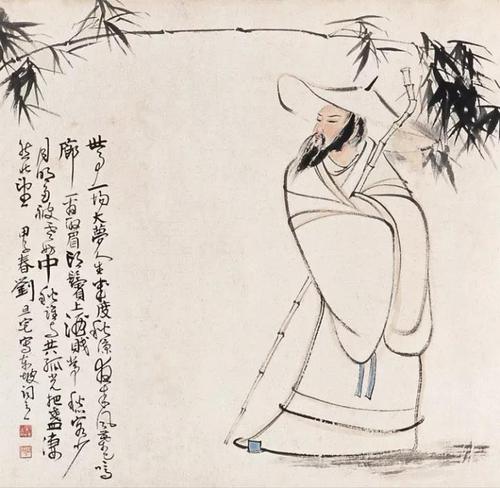 世事一場大夢人生幾度秋涼夜來風葉已鳴
廊看取眉頭鬢上酒賤常愁客少
月明多被雲妨中秋誰與共孤光把盞凄
然北望 甲子春劉旦宅寫東坡詞意